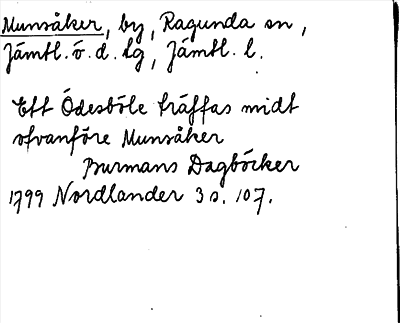 Munsåker, by, Ragunda sn,
Jämtl. ö. d. tg, Jämtl. l.
Ett Ödesböle träffas midt
ofvanföre Munsåker
Burmans Dagböcker
1799 Nordlander 3 s. 107.